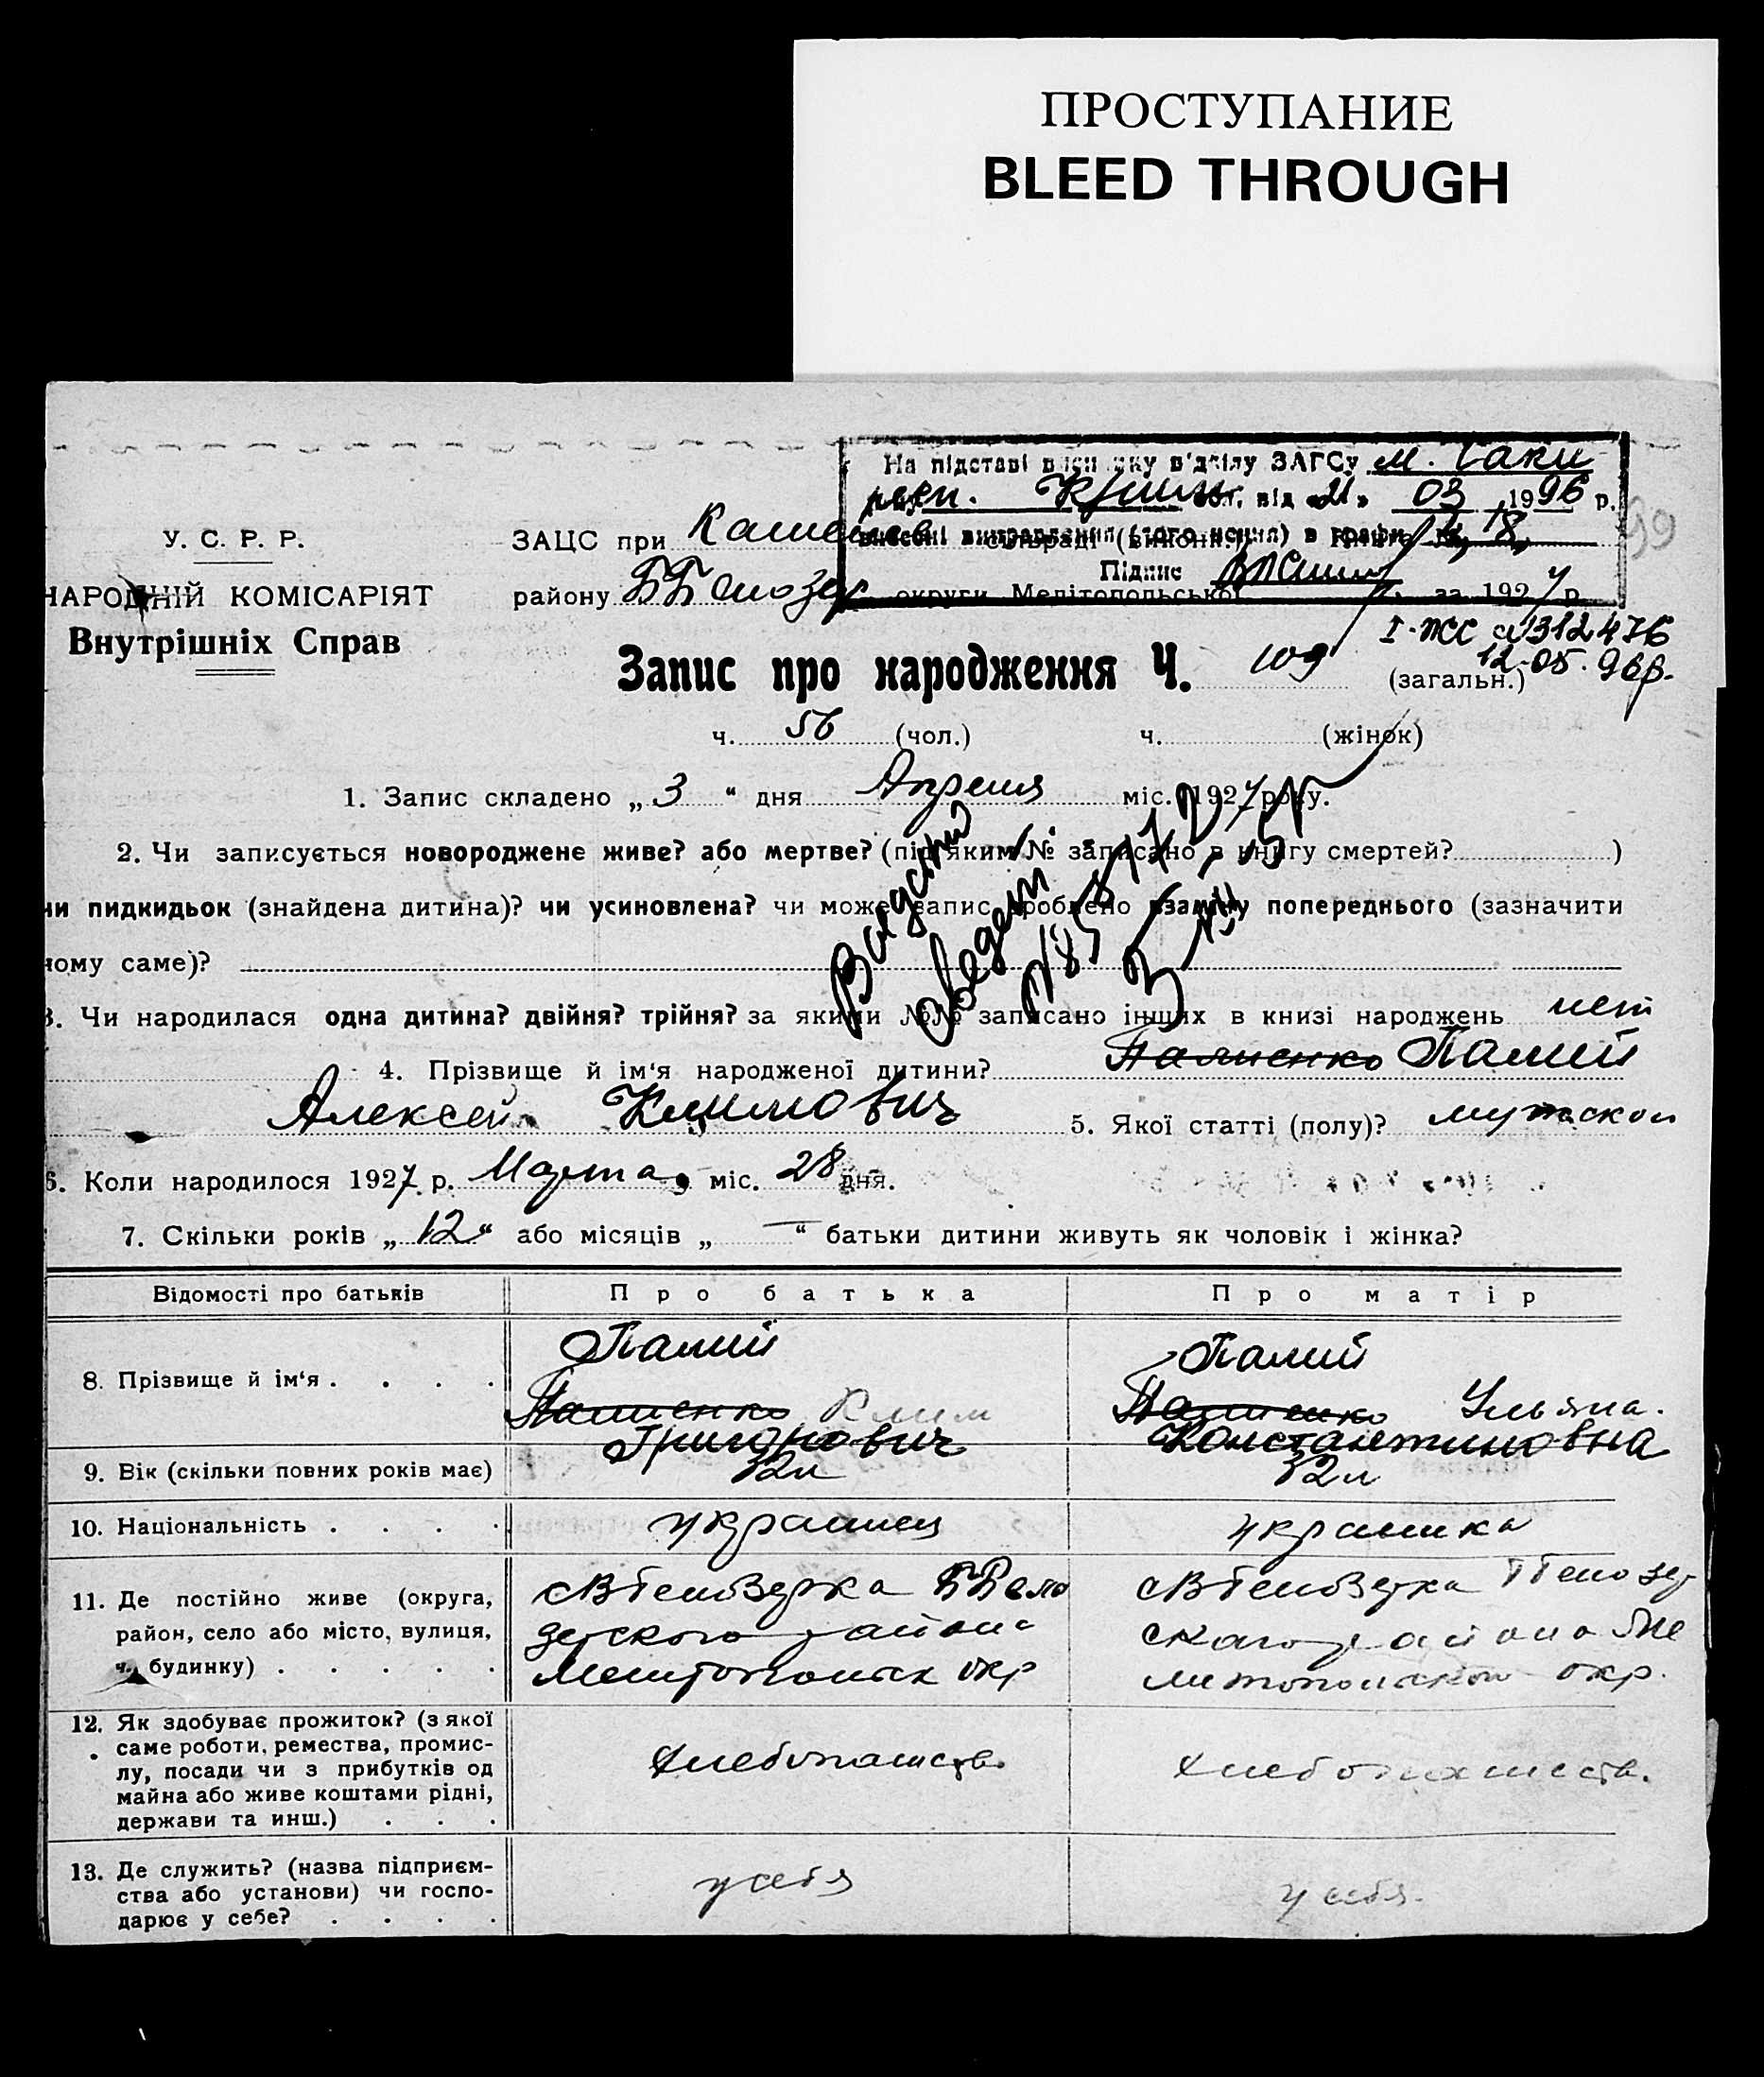 ПРОСТУПАНИЕ
BLEED THROUGH
На підставі висновку в'ділу ЗАГСу м. Саки
респ. Крим обл. від «21» 03 1996 р.
внесені виправлення (доповнення) в графи 4, 8,
Підпис
99
У. С. Р. Р.
НАРОДНІЙ КОМІСАРІЯТ
Внутрішніх Справ
ЗАЦС при сільраді (виконк.) Книга №
району округи Мелітопольської за 1927 р.
I-ЖС 312476
12.05.96р.
Запис про народження Ч. 109 (загальн.)
ч. 56 (чол.) ч. (жінок)
1. Запис складено „ 3 “ дня Апреля міс. 1927 року.
2. Чи записується новороджене живе? або мертве? (під яким № записано в книгу смертей? )
чи пидкидьок (знайдена дитина)? чи усиновлена? чи може запис зроблено взаміну попереднього (зазначити
чому саме)?
3. Чи народилася одна дитина? двійня? трійня? за якими №№ записано інших в книзі народжень нет
4. Прізвище й ім‘я народженої дитини? Палиенко Палий
Алексей Климович 5. Якої статті (полу)? мужской
6. Коли народилося 1927 р. Марта міс. 28 дня.
7. Скільки років „ 12 “ або місяців „ — “ батьки дитини живуть як чоловік і жінка?
Відомості про батьків Про батька Про матір
8. Прізвище й ім‘я . . . .
Палий
Палиенко Клим
Григорович
Палий
Палиенко Ульяна.
Константиновна
9. Вік (скільки повних років має) 32л 32л
10. Національність . . . . украинец украинка
11. Де постійно живе (округа,
район, село або місто, вулиця,
ч. будинку) . . . . .
зерского района
Мелитопольск окр
ского района Ме
литопольской окр.
12. Як здобуває прожиток? (з якої
саме роботи, ремества, промис-
лу, посади чи з прибутків од
майна або живе коштами рідні,
держави та инш.) . . .
хлебопашств.
хлебопашеств.
13. Де служить? (назва підприєм-
ства або установи) чи госпо-
дарює у себе? . . . .
у себя
у себя.